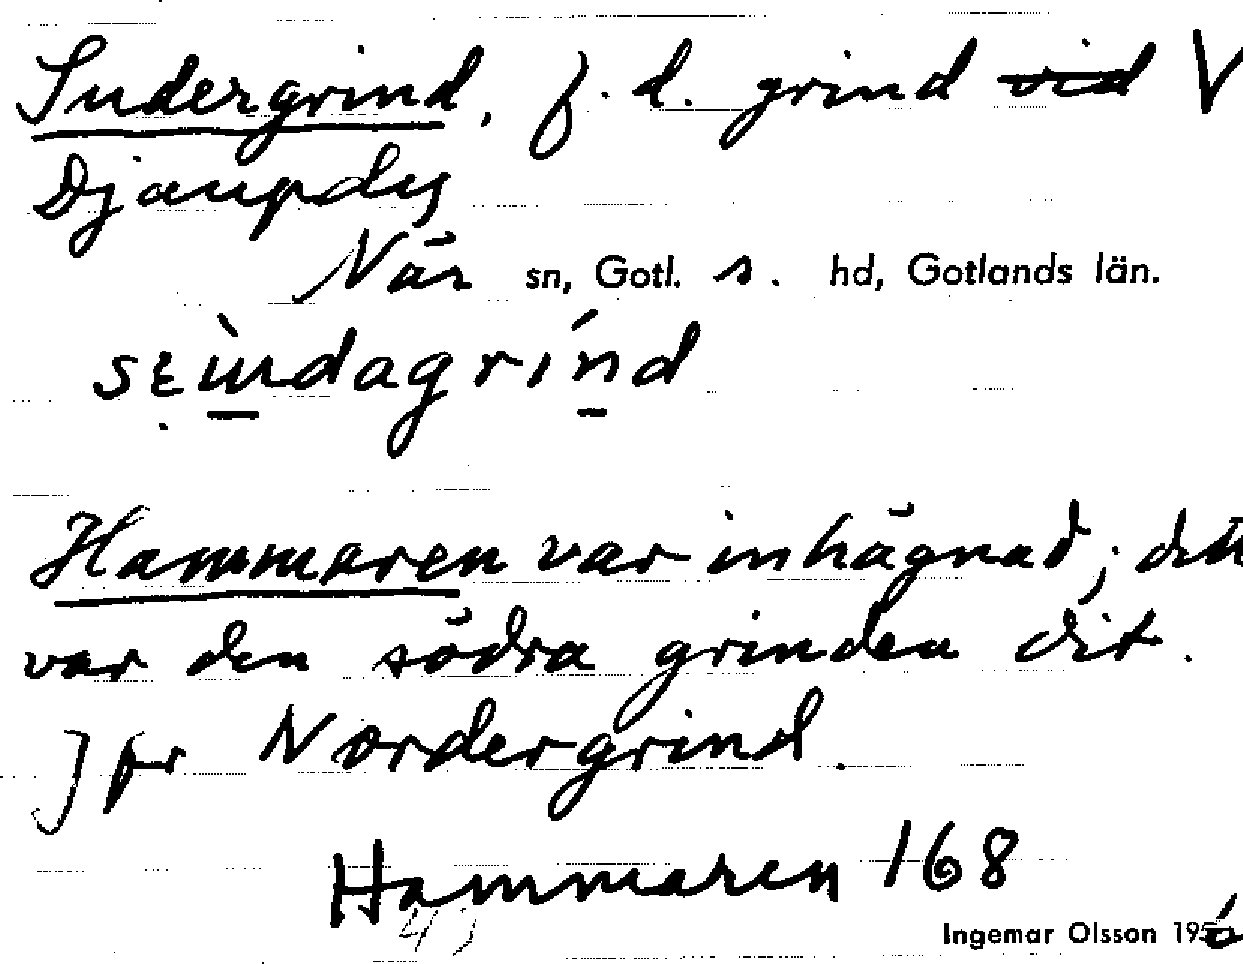 Sudergrind, f. d. grind ~~vid~~ V
Djaupdy
När sn, Gotl. s. hd, Gotlands län.
Hammaren var inhägnad; det
var den södra grinden dit.
Jfr Nordergrind.
Hammaren 168
43
Ingemar Olsson 195